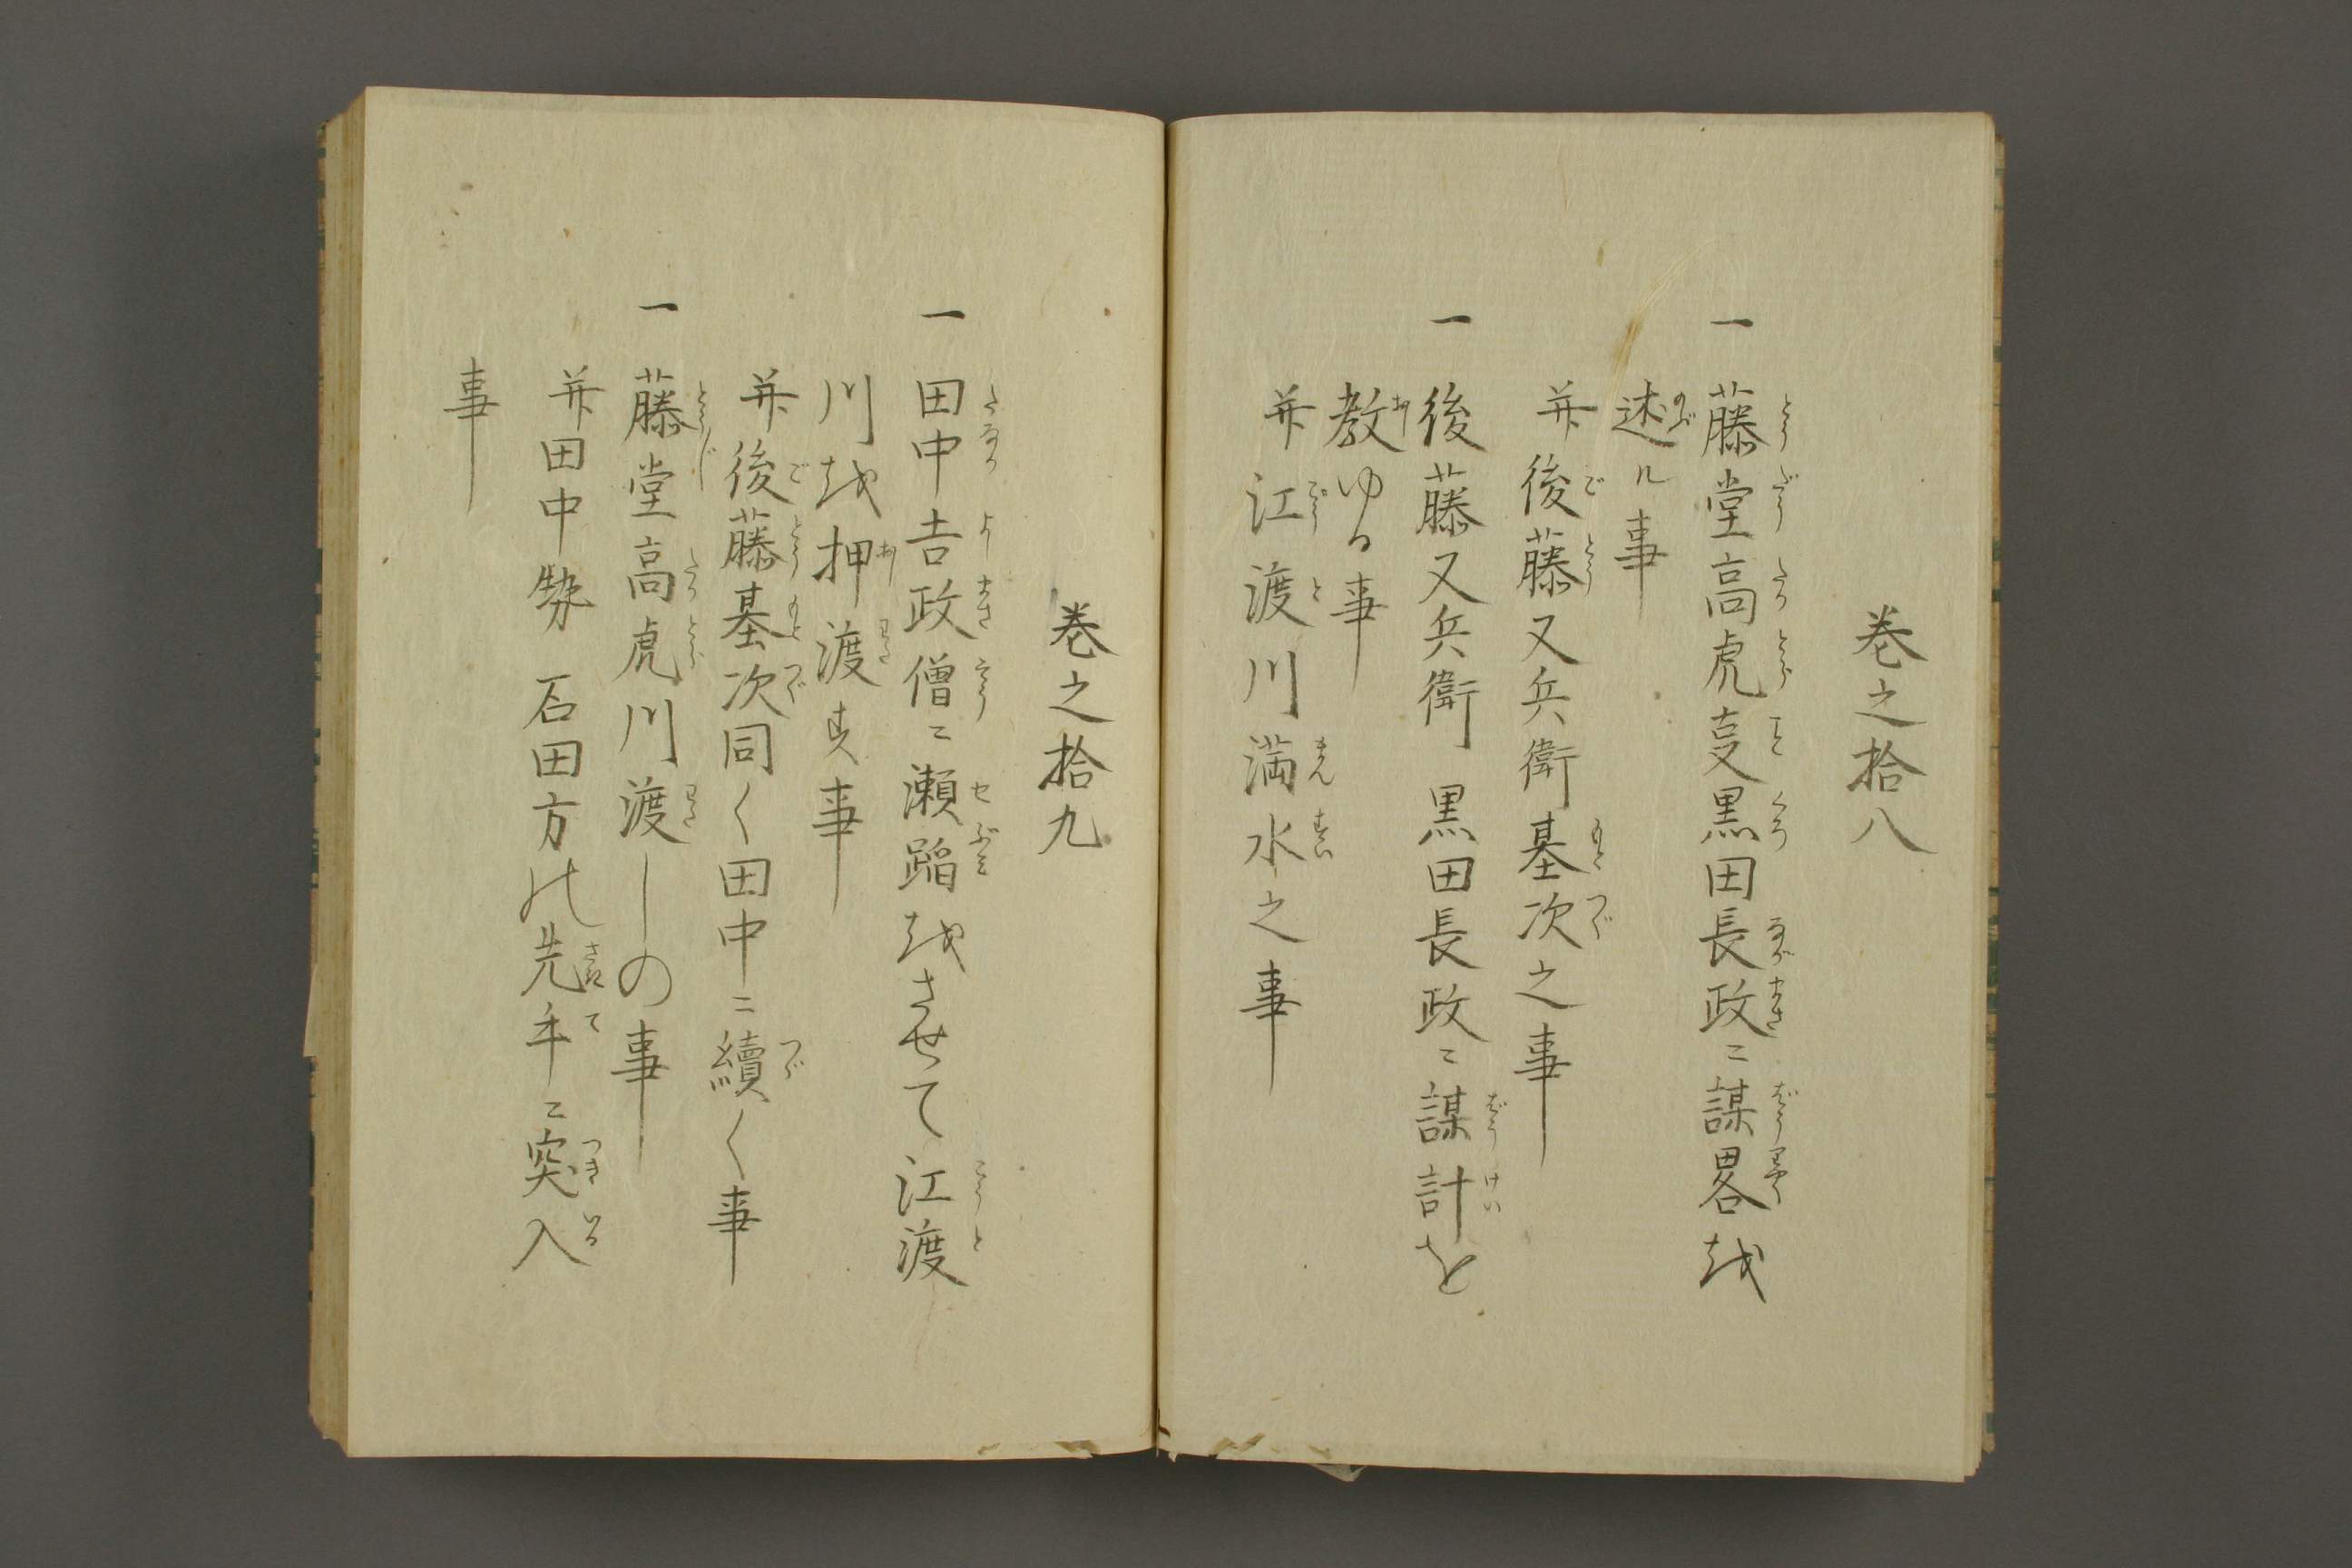 巻之拾八
一藤堂高虎叓黒田長政ニ謀畧越
述ル事
并後藤又兵衛基次之事
一後藤又兵衛黒田長政ニ謀計を
教ゆる事
并江渡川満水之事
巻之拾九
一田中吉政僧ニ瀬踏越させて江渡
川越押渡す事
并後藤基次同く田中ニ續く事
一藤堂高虎川渡しの事
并田中勢石田方の先手ニ突入
事